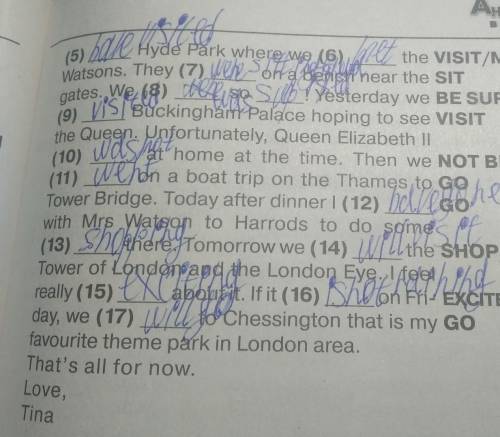 (5) have visited Hyde Park where we (6) the VISIT/M
Watsons. They (7) were on a bench near the SIT
gates. We (8) were so ! Yesterday we BE SUR
(9) visited Buckingham Palace hoping to see VISIT
the Queen. Unfortunately, Queen Elizabeth II
(10) was not at home at the time. Then we NOT B
(11) went on a boat trip on the Thames to GO
Tower Bridge. Today after dinner I (12) GO
with Mrs Watson to Harrods to do some
(13) shopping there. Tomorrow we (14) will visit the SHOP
Tower of London and the London Eye. I feel
really (15) about it. If it (16) on Fri- EXCITE
day, we (17) to Chessington that is my GO
favourite theme park in London area.
That's all for now.
Love,
Tina